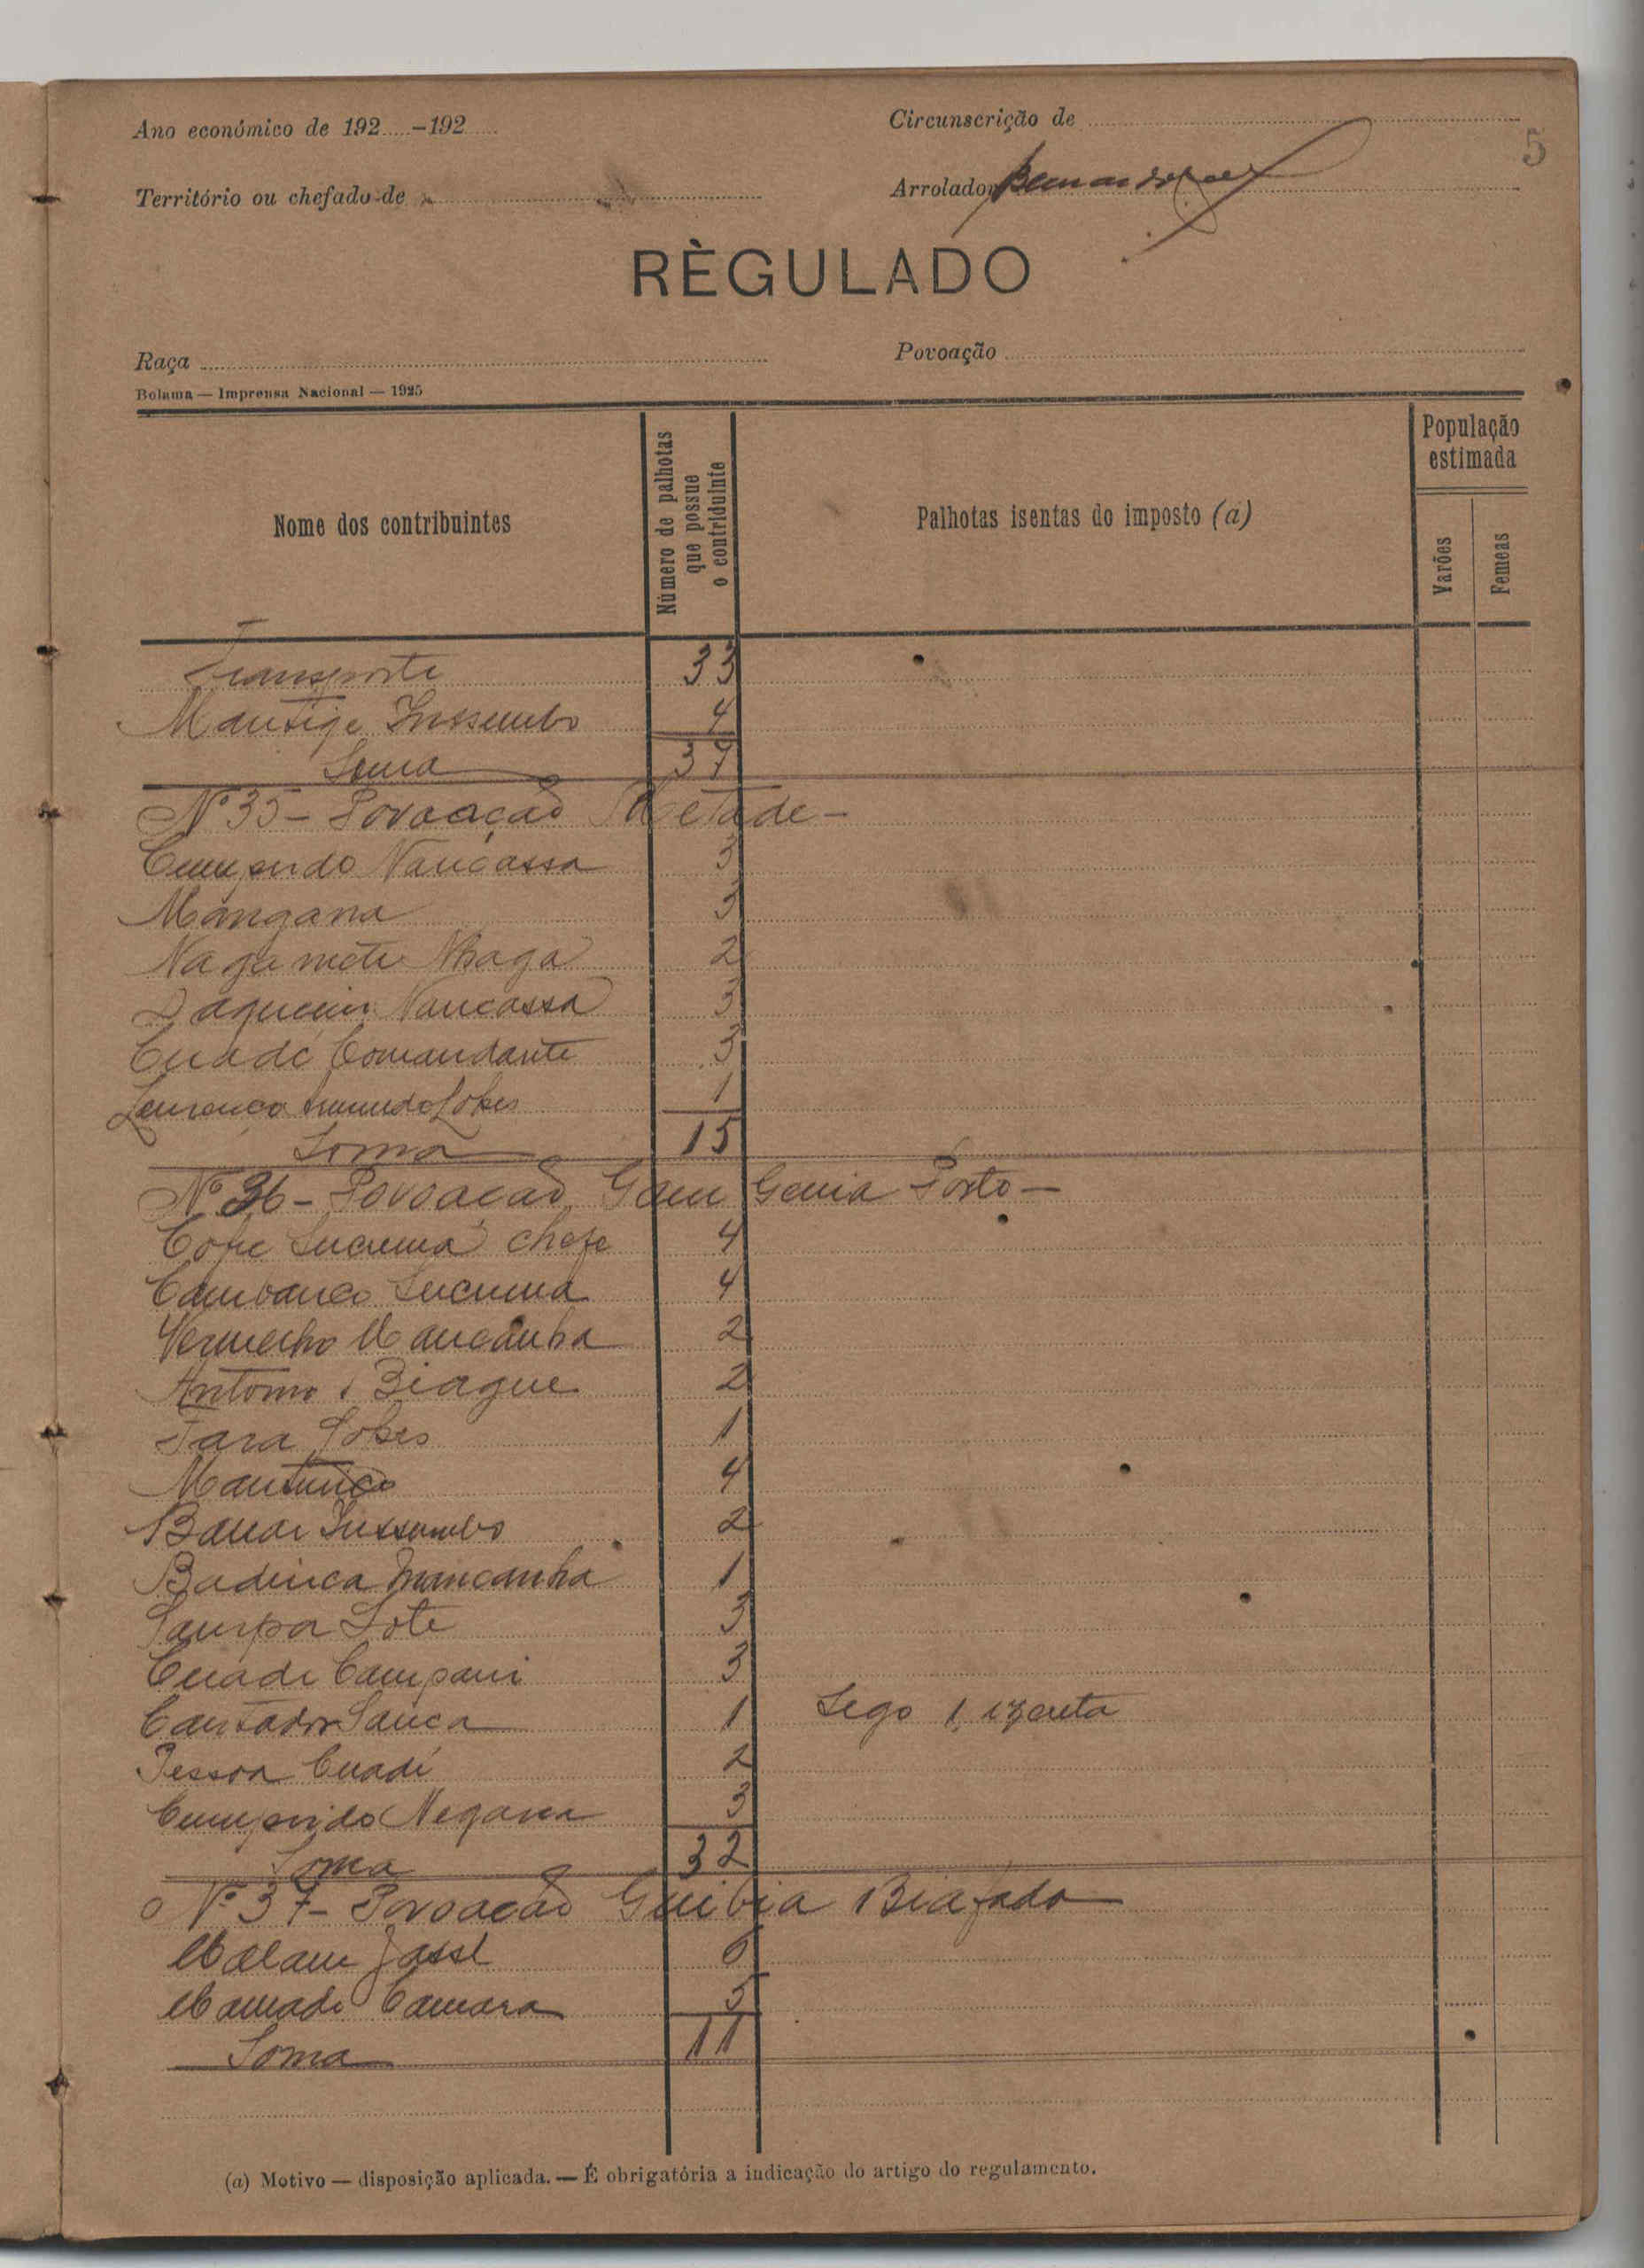 Ano económico de 192.....-192.....
Circunscrição de
5
Território ou chefado de
Arrolador
RÈGULADO
Raça
Povoação
Bolama — Imprensa Nacional — 1925
Nome dos contribuintes
Número de palhotas que possue o contriduinte
Palhotas isentas do imposto (a)
População estimada
Varões
Femeas
Transporte 33
Mantige Inssumbo 4
Soma 37
Nº 35 - Povoação Metade -
Cumprido Nancassa 3
Mangana 3
Naga mete Nhaga 2
Nancassa 3
Cuade Comandante 3
Lourenço Lopes 1
Soma 15
Nº 36 - Povoação Gam Genia Porto -
Cofe Sucuma chefe 4
Sucuma 4
Vermelho Mancanha 2
Antonio Biague 2
Tara Lopes 1
4
Inssumbo 2
Badinca Mancanha 1
Sampa Sote 3
Cuade Campani 3
Cantador Sanca 1 Sego 1 izenta
Pessoa Cuade 2
Cumprido Negana 3
Soma 32
Nº 37 - Povoação Guibia Biafado
Malam Jassi 6
Mamadi Camara 5
Soma 11
(a) Motivo — disposição aplicada. — É obrigatória a indicação do artigo do regulamento.